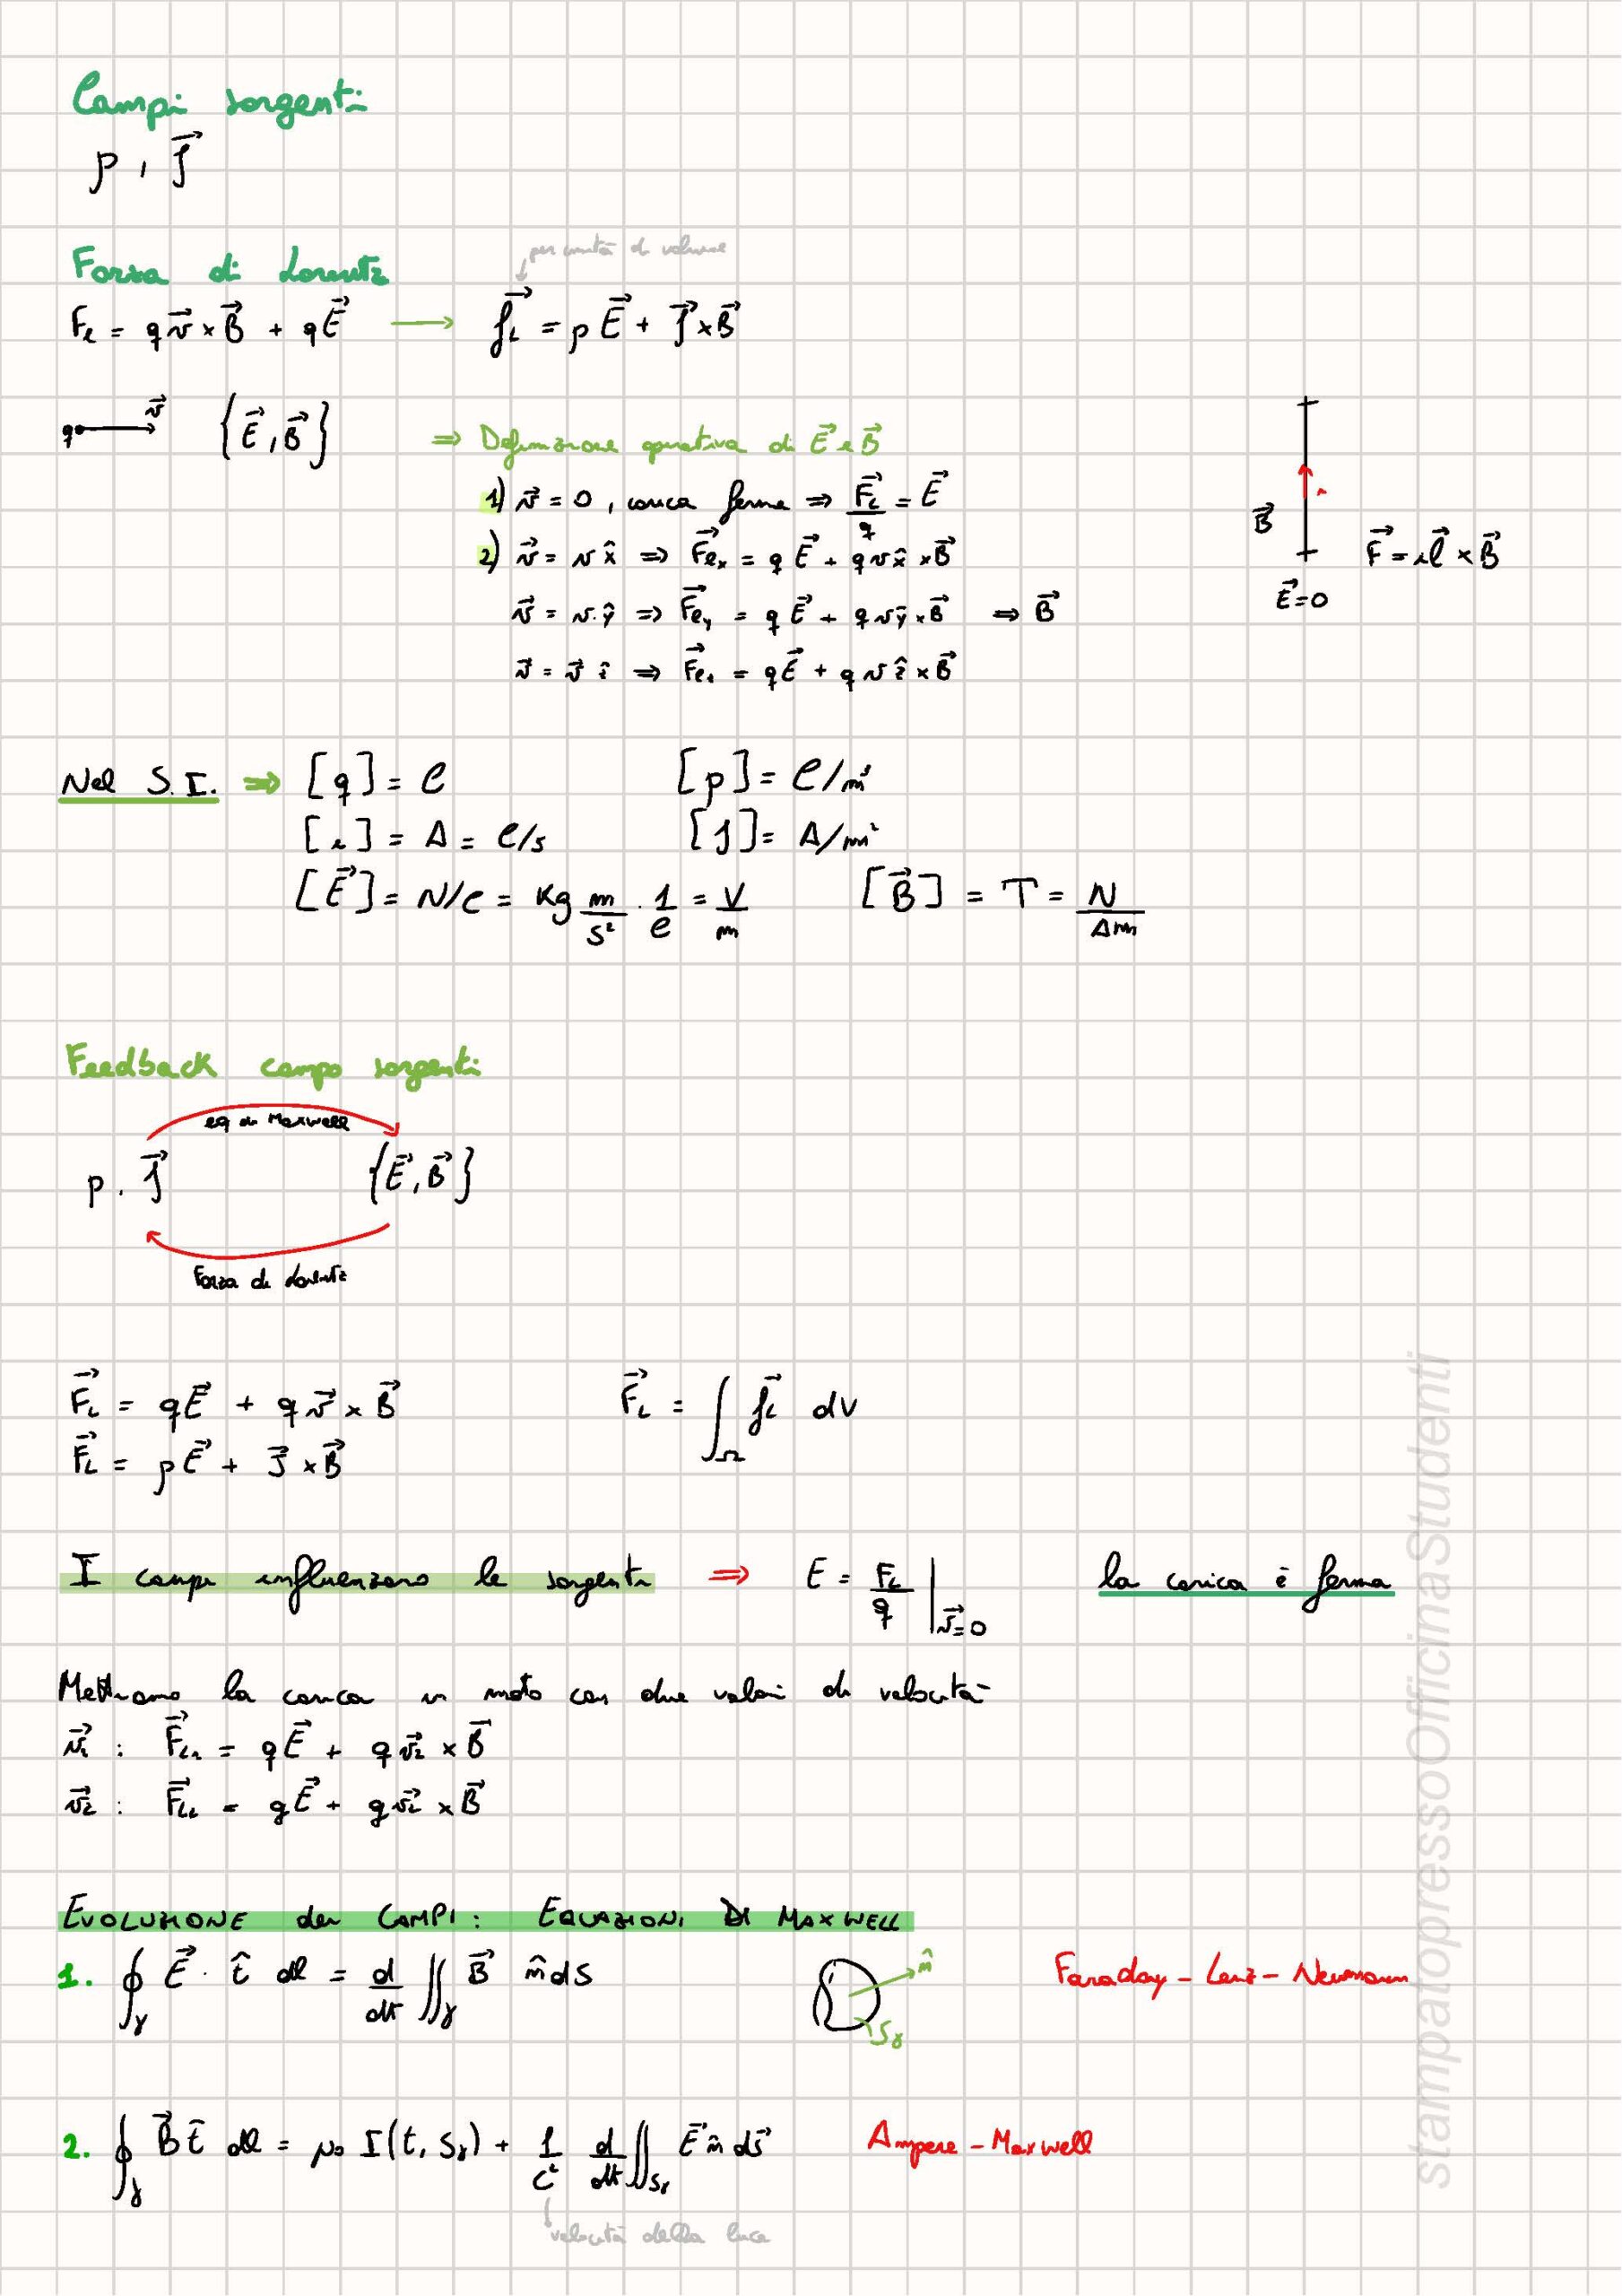 Campi sorgenti
ρ, J⃗
Forza di Lorentz
per unità di volume
F_L = q v⃗ × B⃗ + q E⃗ → f⃗_L = ρ E⃗ + J⃗ × B⃗
q v⃗ {E⃗, B⃗}
⇒ Definizione operativa di E⃗ e B⃗
1) v⃗ = 0, carica ferma ⇒ F⃗_L/q = E⃗
2) v⃗ = v x̂ ⇒ F⃗_Lx = q E⃗ + q v x̂ × B⃗
v⃗ = v·ŷ ⇒ F⃗_Ly = q E⃗ + q v ŷ × B⃗ ⇒ B⃗
v⃗ = v⃗ ẑ ⇒ F⃗_Lz = q E⃗ + q v ẑ × B⃗
i
B⃗
F⃗ = i l⃗ × B⃗
E⃗ = 0
Nel S.I. ⇒ [q] = C [ρ] = C/m³
[i] = A = C/s [J] = A/m²
[E⃗] = N/C = Kg m/s² · 1/C = V/m [B⃗] = T = N/Am
Feedback campo sorgenti
eq di Maxwell
ρ. J⃗ {E⃗, B⃗}
Forza di Lorentz
F⃗_L = q E⃗ + q v⃗ × B⃗ F⃗_L = ∫_Ω f⃗_L dV
F⃗_L = ρ E⃗ + J⃗ × B⃗
I campi influenzano le sorgenti ⇒ E = F_L/q |_v⃗=0 la carica è ferma
Mettiamo la carica in moto con due valori di velocità
v⃗₁ : F⃗_L1 = q E⃗ + q v⃗₂ × B⃗
v⃗₂ : F⃗_L2 = q E⃗ + q v⃗₂ × B⃗
EVOLUZIONE dei CAMPI: EQUAZIONI DI MAXWELL
1. ∮_γ E⃗ · t̂ dl = d/dt ∬_γ B⃗ n̂ dS n̂ Faraday - Lenz - Neumann
S_γ
2. ∮_γ B⃗ t̂ dl = μ₀ I(t, S_γ) + 1/c² d/dt ∬_Sγ E⃗ n̂ dS⃗ Ampere - Maxwell
velocità della luce
stampatopressoOfficinaStudenti